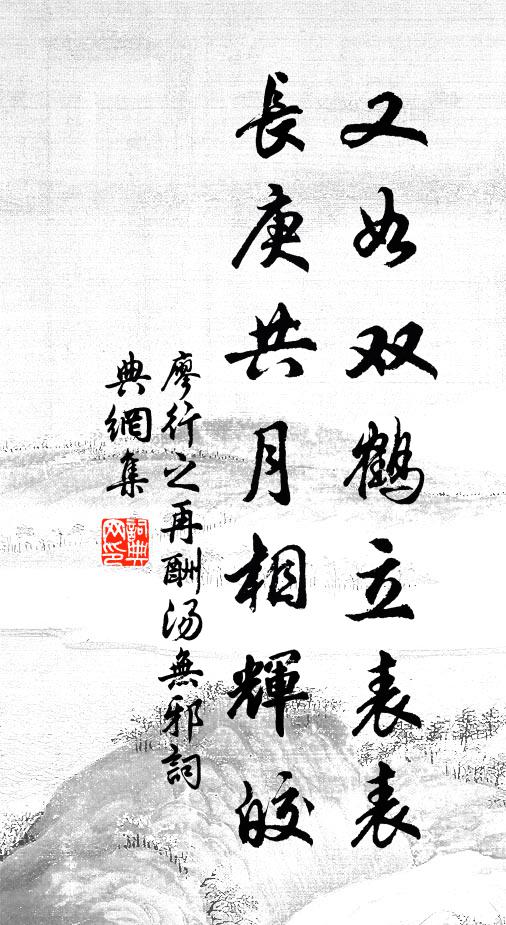 又如双鹤立表表
長庚共月相輝皎
廖行之再酬湯無邪詞
典網集
詞典网印